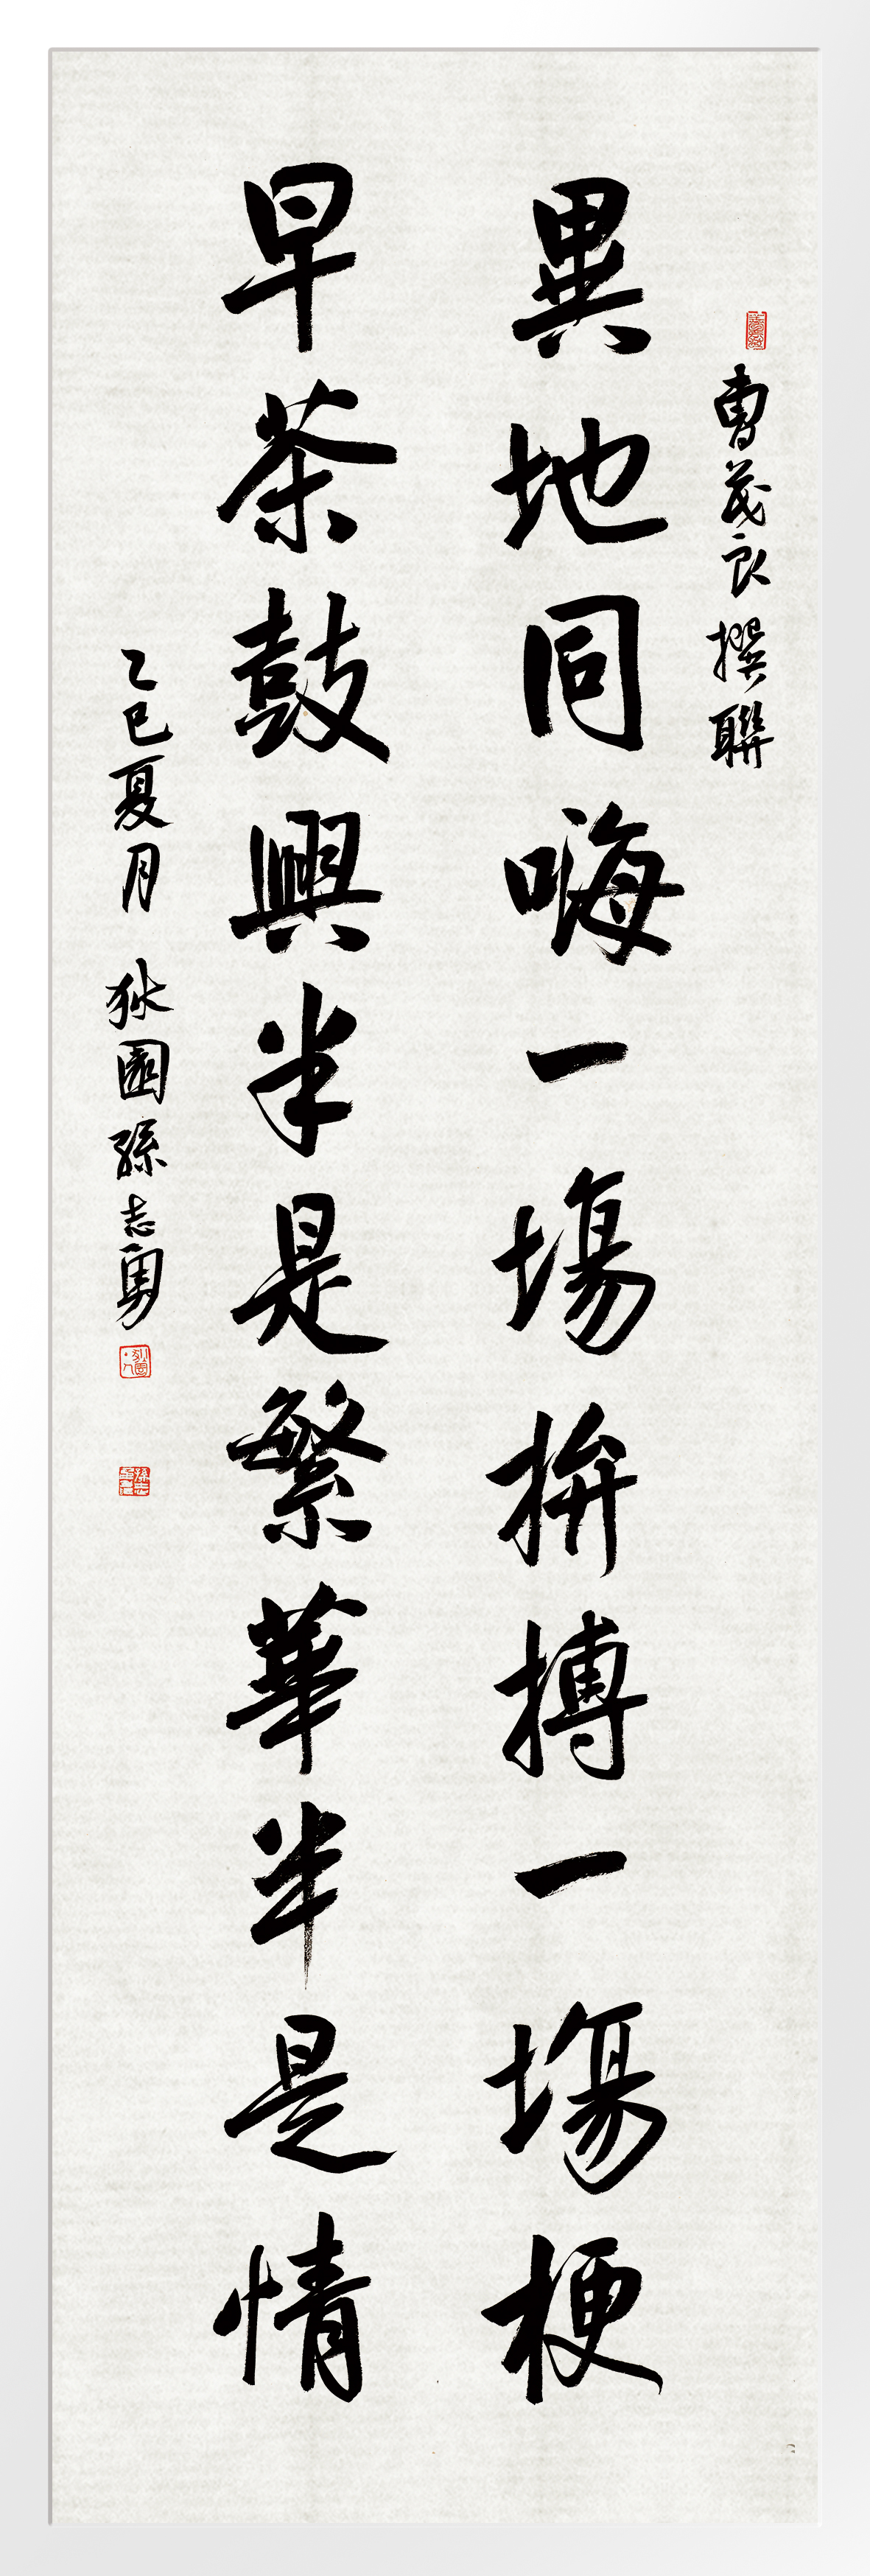 曹茂良撰聯
異地同嗨一塲拼搏一塲梗
早茶鼓興半是繁華半是情
乙巳夏月 狄園孫志勇